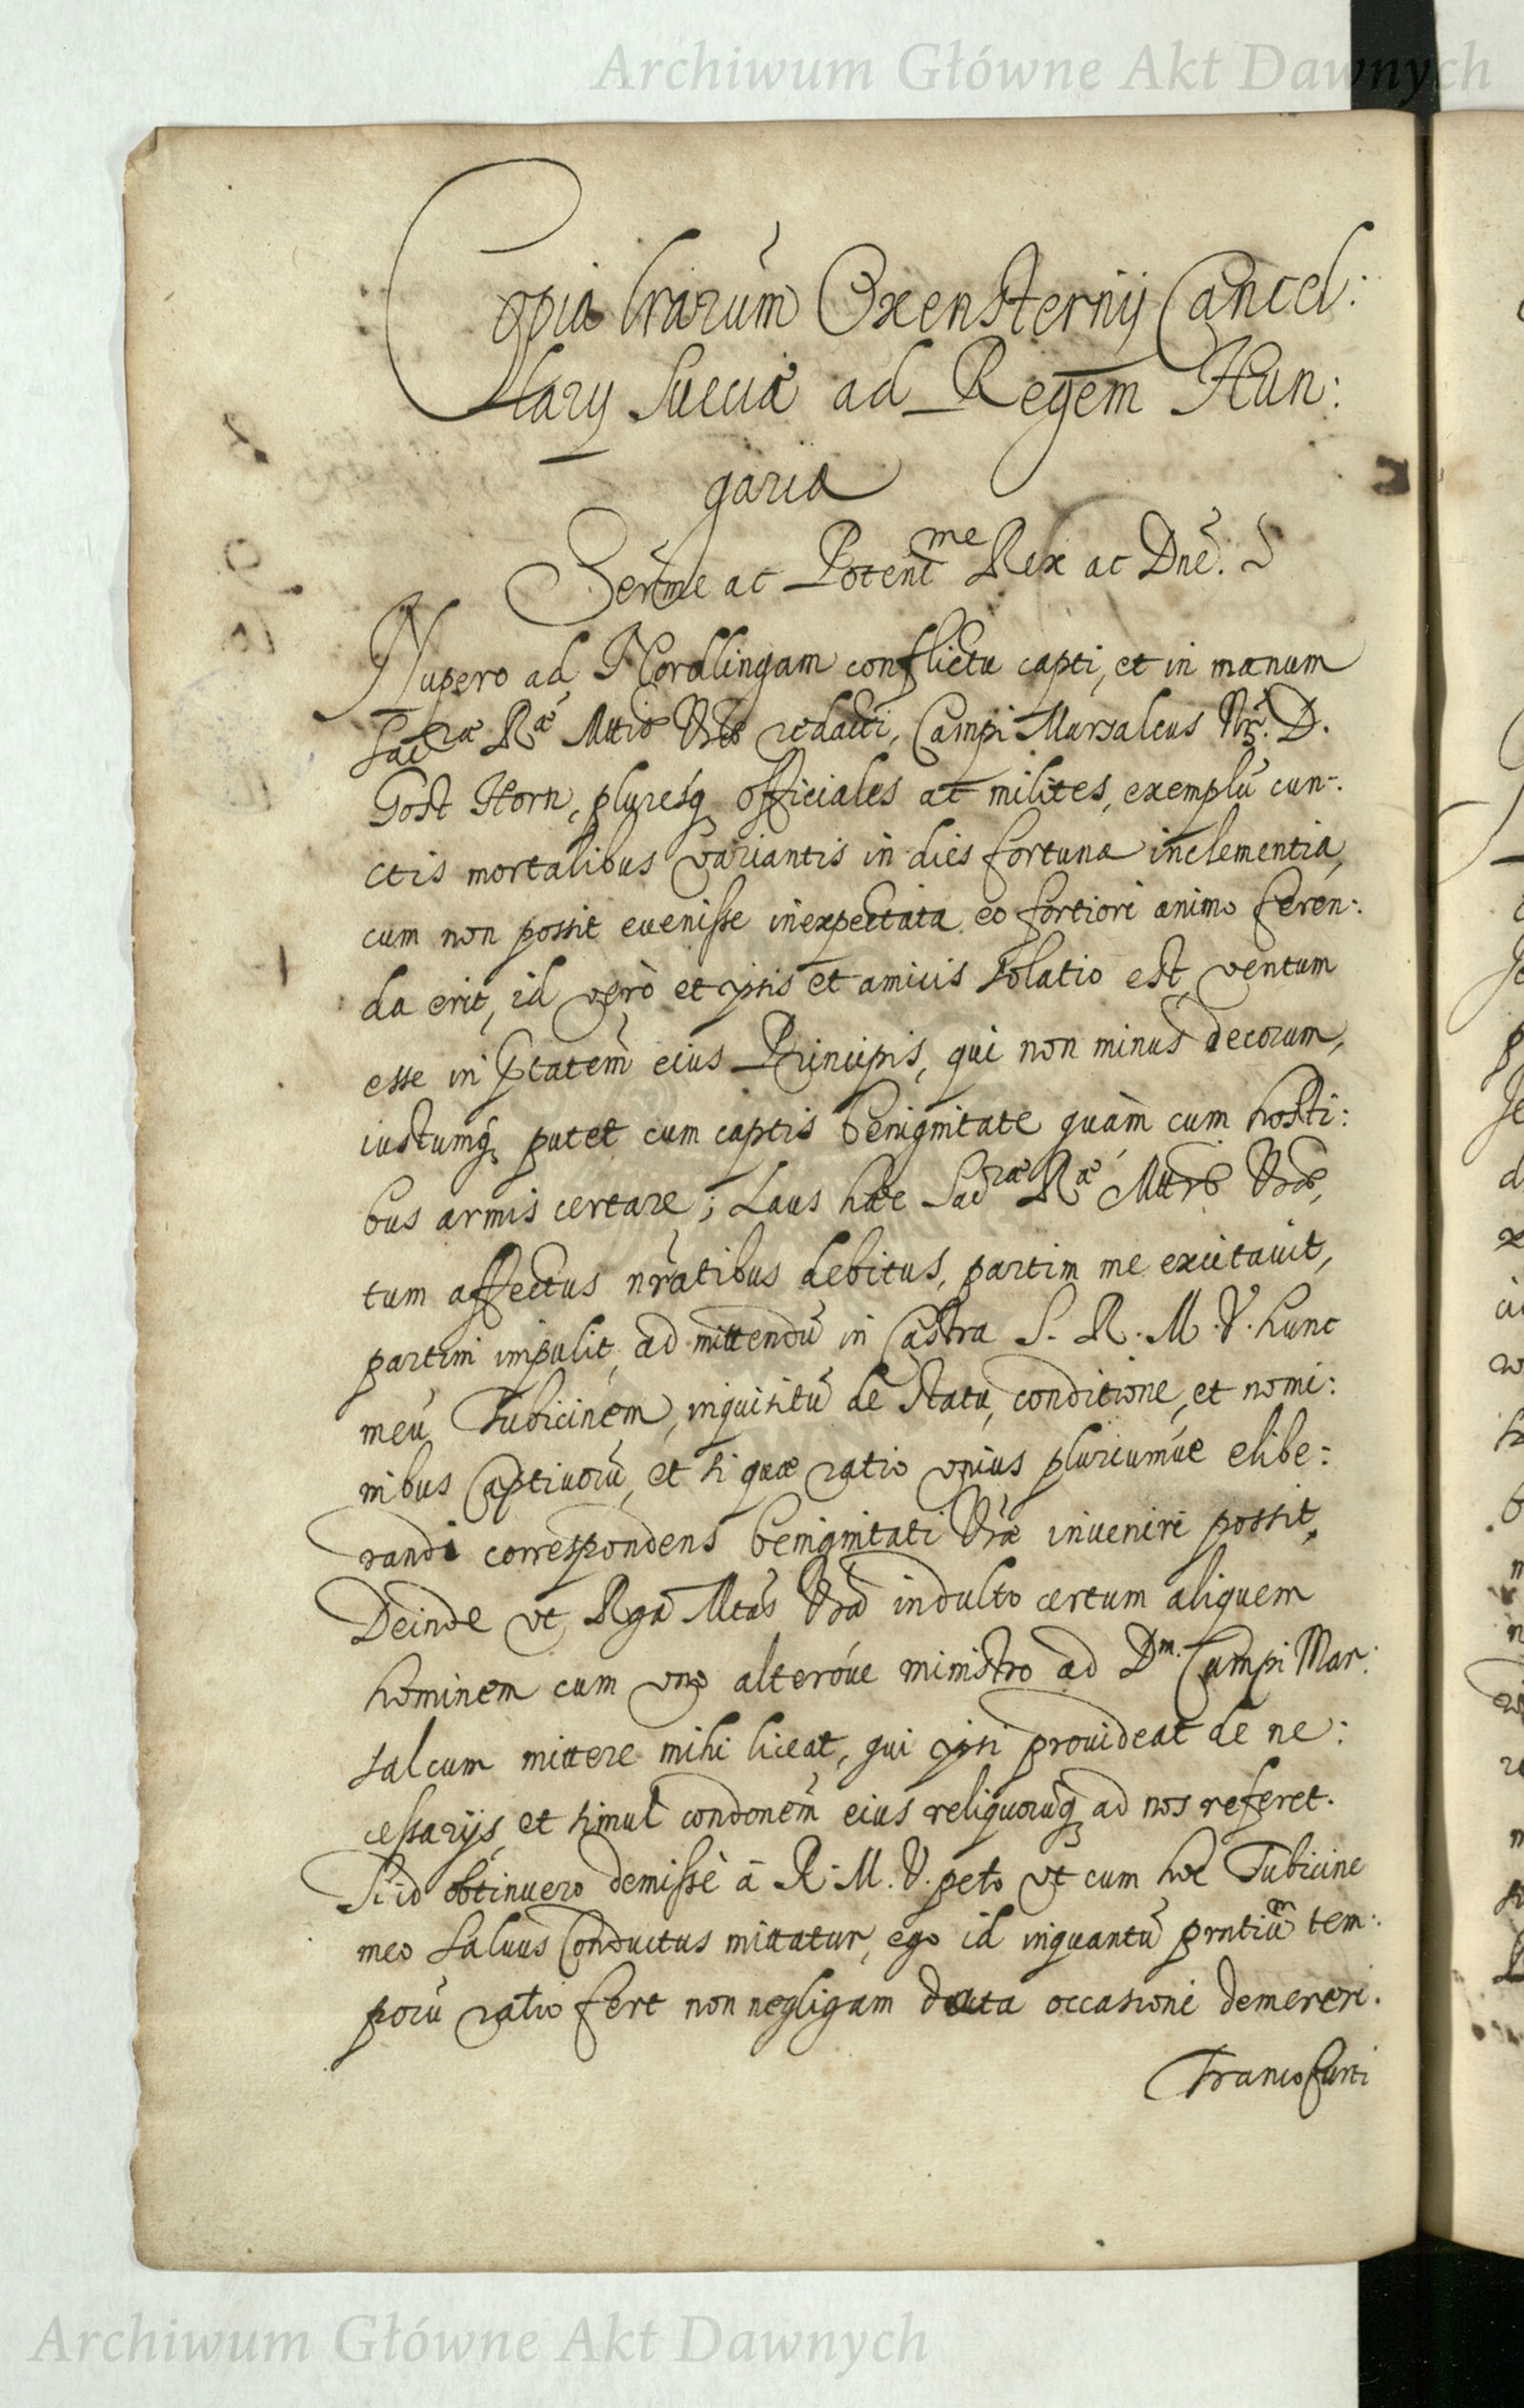 Archiwum Główne Akt Dawnych
Copia lrarum Oxensternij Cancel:
lary Sueciæ ad Regem Hun:
gariæ
Serme ac Potentme Rex ac Dne.
Nupero ad Nordlingam conflictu capti, et in manum
Sacræ Ræ Mttis Vræ redacti, Campi Marsalcus Nr. D.
Gost Horn, pluresq officiales ac milites, exemplū cun:
ctis mortalibus variantis in dies fortunæ inclementiæ,
cum non possit euenisse inexpectata eo fortiori animo feren:
da erit, id verò et ipsis et amicis solatio est, ventum
esse in ptatem eius Principis, qui non minus decorum,
iustumq putet cum captis benignitate quàm cum hosti:
bus armis certare; Laus hæc Sacræ Ræ Mttis Vræ,
tum affectus nratibus debitus, partim me excitauit,
partim impulit, ad mittendū in Castra S. R. M. V. hunc
meū Tubicinem, inquisitū de Statu, conditione, et nomi:
nibus Captiuorū, et si quæ ratio vnius pluriumue elibe:
randi correspondens benignitati Vræ inueniri possit,
Deinde vt Rga Mtas Vra indulto certum aliquem
hominem cum vno alteróue ministro ad Dm. Campi Mar:
salcum mittere mihi liceat, qui ipsi prouideat de ne:
cessarijs, et simul condonem eius reliquorūq ad nos referet.
Si id obtinuero demissè à R. M. V. peto vt cum hoc Tubicine
meo saluus Conductus mittatur, ego id inquantū prntiūm tem:
porū ratio fert non negligam data occasione demereri.
Francofurti
Archiwum Główne Akt Dawnych